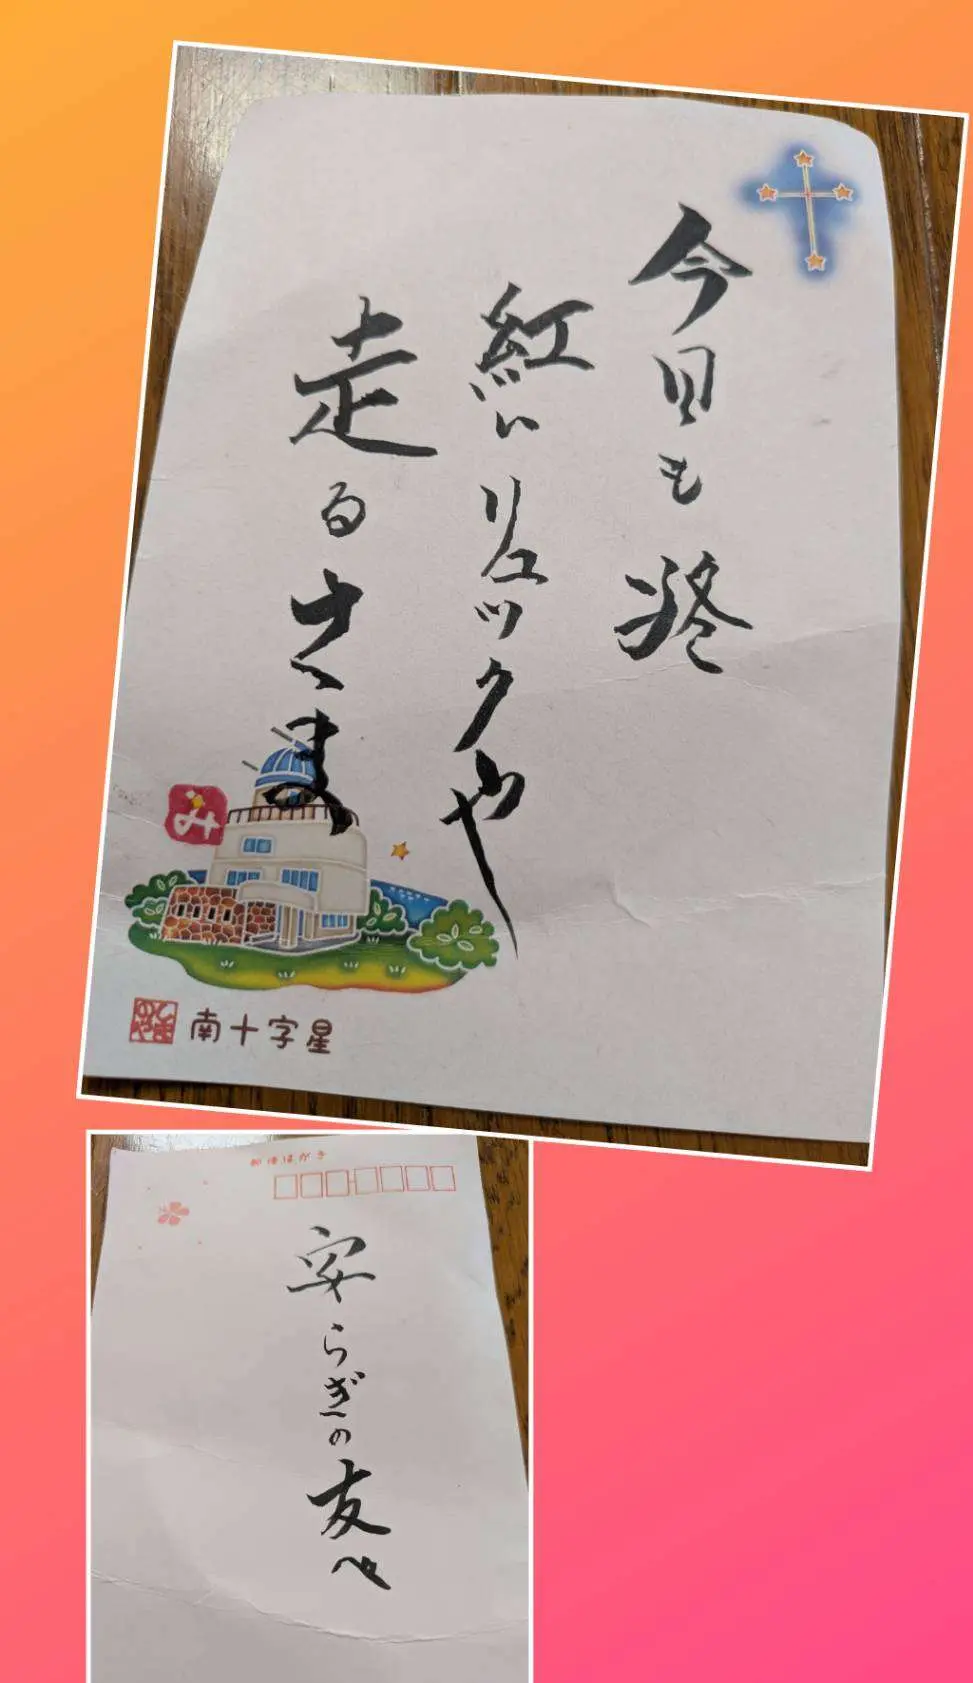 今日も
紅いリュックや
走るさま
み
南十字星
郵便はがき
安らぎの友へ